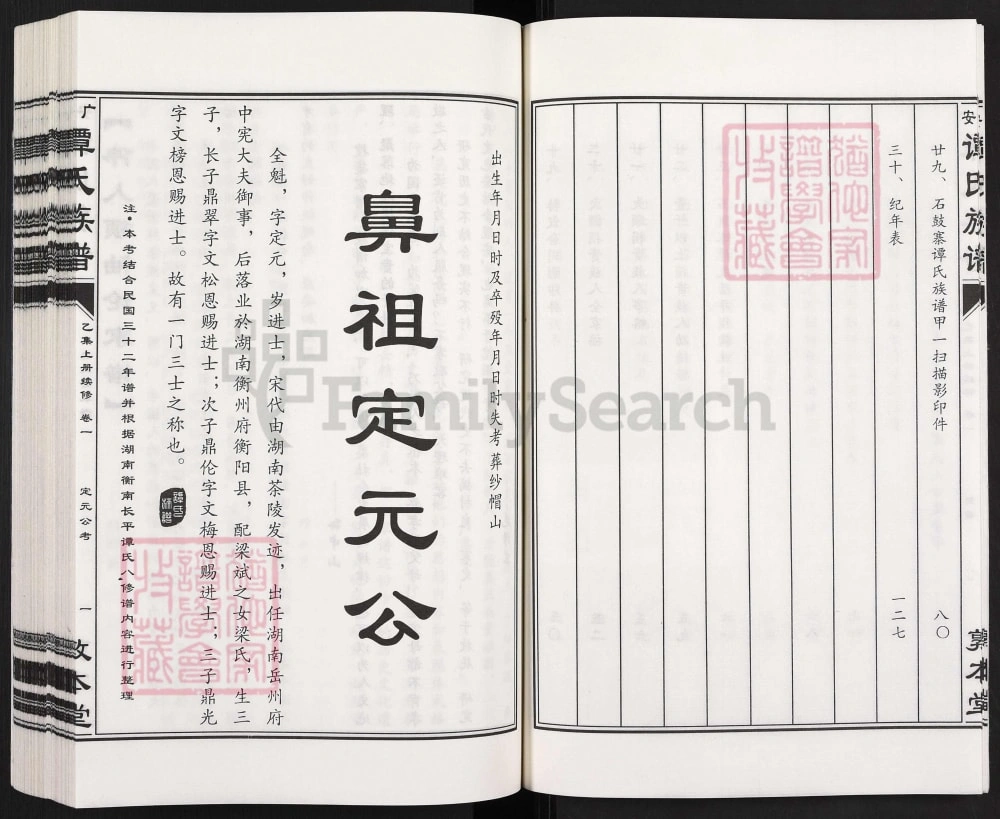 安 谭氏族谱
廿九、石鼓寨谭氏族谱甲一扫描影印件 八〇
三十、纪年表 一二七
敦本堂
猶他家譜學會收藏
出生年月日时及卒殁年月日时失考葬纱帽山
鼻祖定元公
全魁，字定元，岁进士，宋代由湖南茶陵发迹，出任湖南岳州府
中宪大夫御事，后落业於湖南衡州府衡阳县，配梁斌之女梁氏，生三
子，长子鼎翠字文松恩赐进士；次子鼎伦字文梅恩赐进士；三子鼎光
字文榜恩赐进士。故有一门三士之称也。
譚氏族譜
注·本考结合民国三十二年谱并根据湖南衡南长平谭氏八修谱内容进行整理
猶他家譜學會收藏
广 谭氏族谱
乙集上册续修 卷一
定元公考
一
敦本堂
FamilySearch